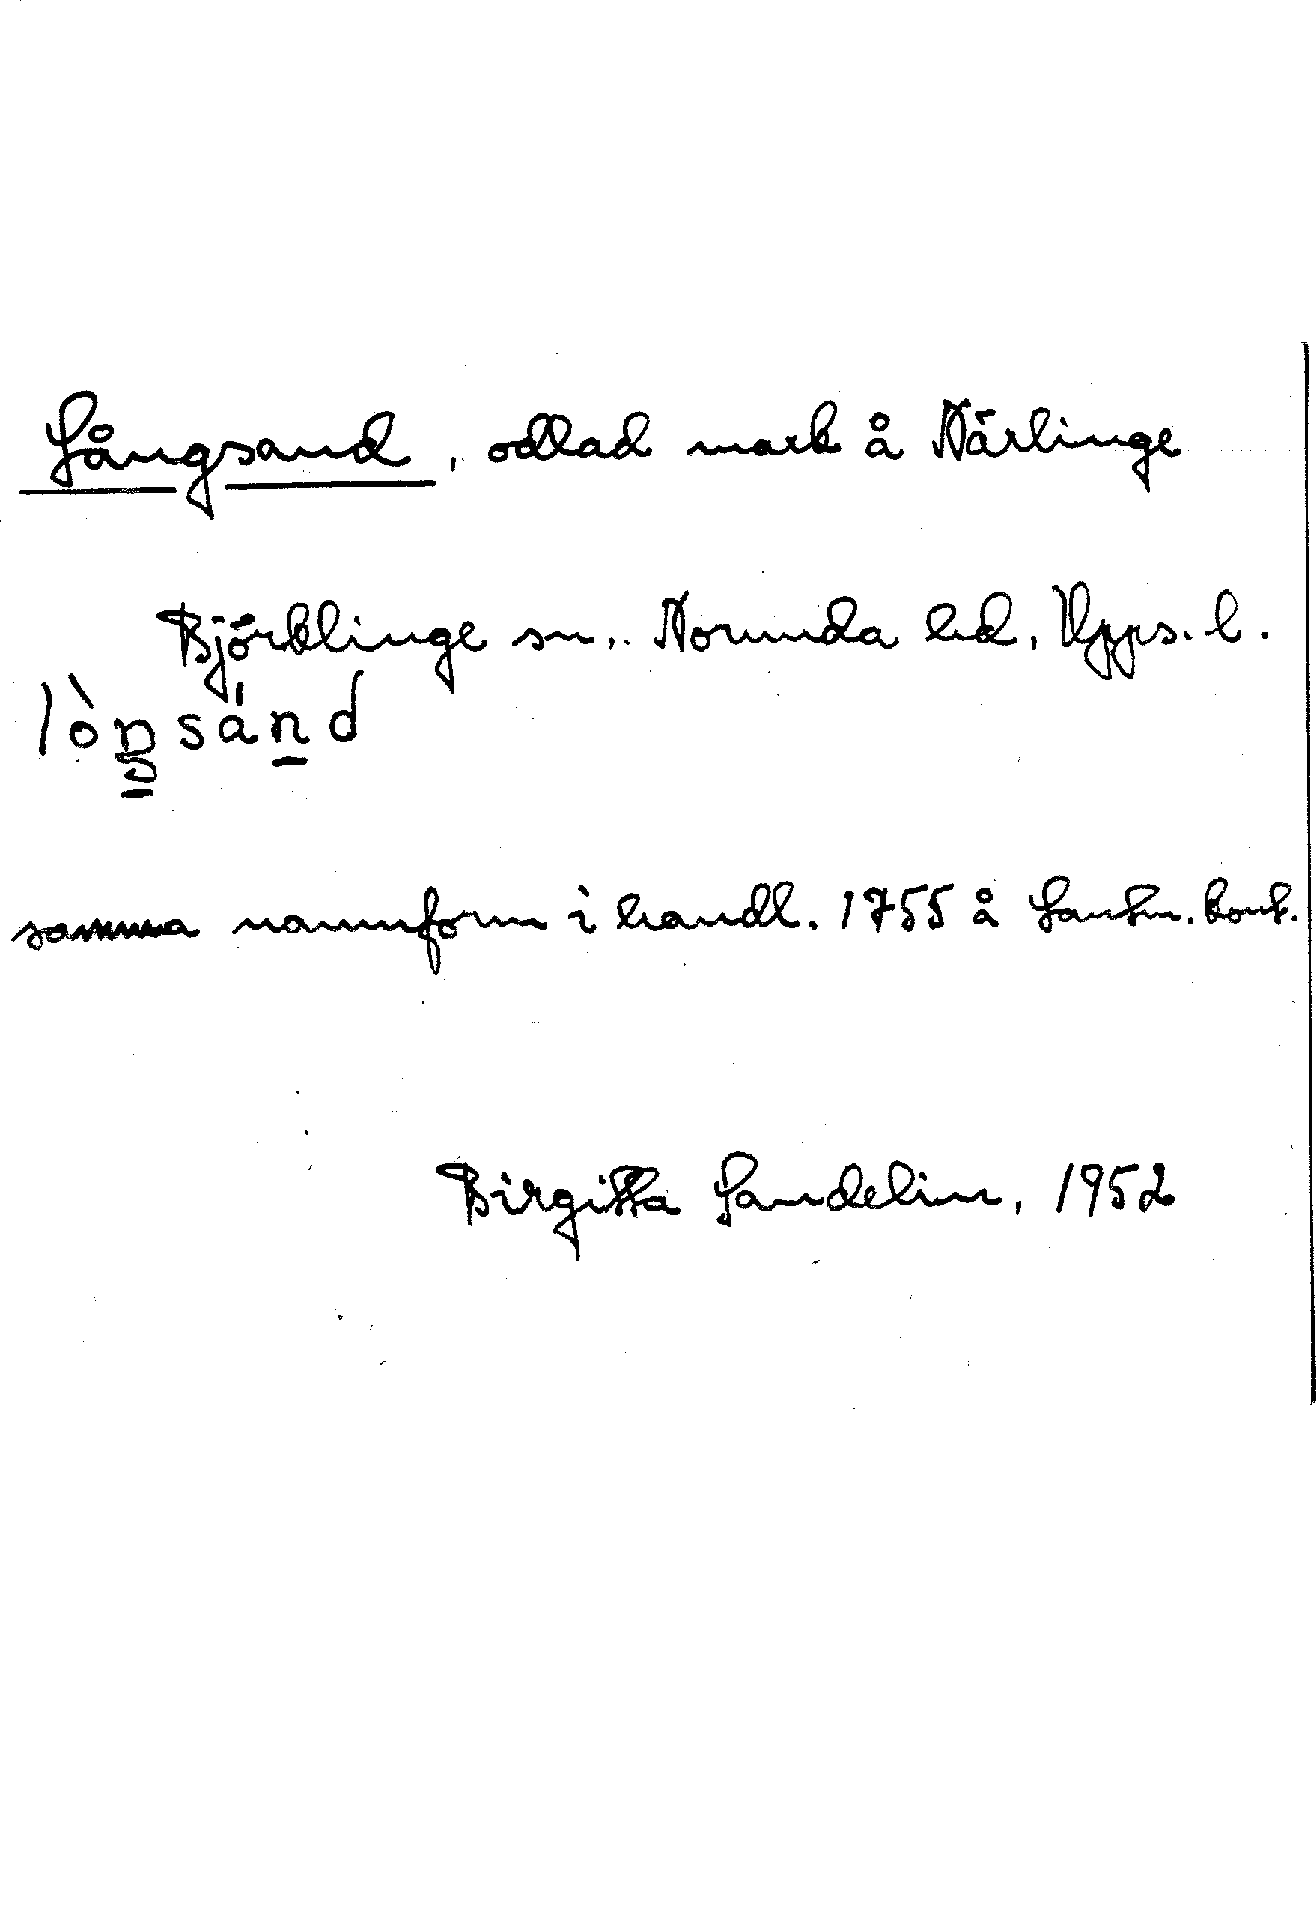 Långsand, odlad mark å Närlinge
Björklinge sn., Norunda hd, Upps. l.
lòŋsánd
samma namnform i handl. 1755 å Lantm. kont.
Birgitta Sandelin, 1952